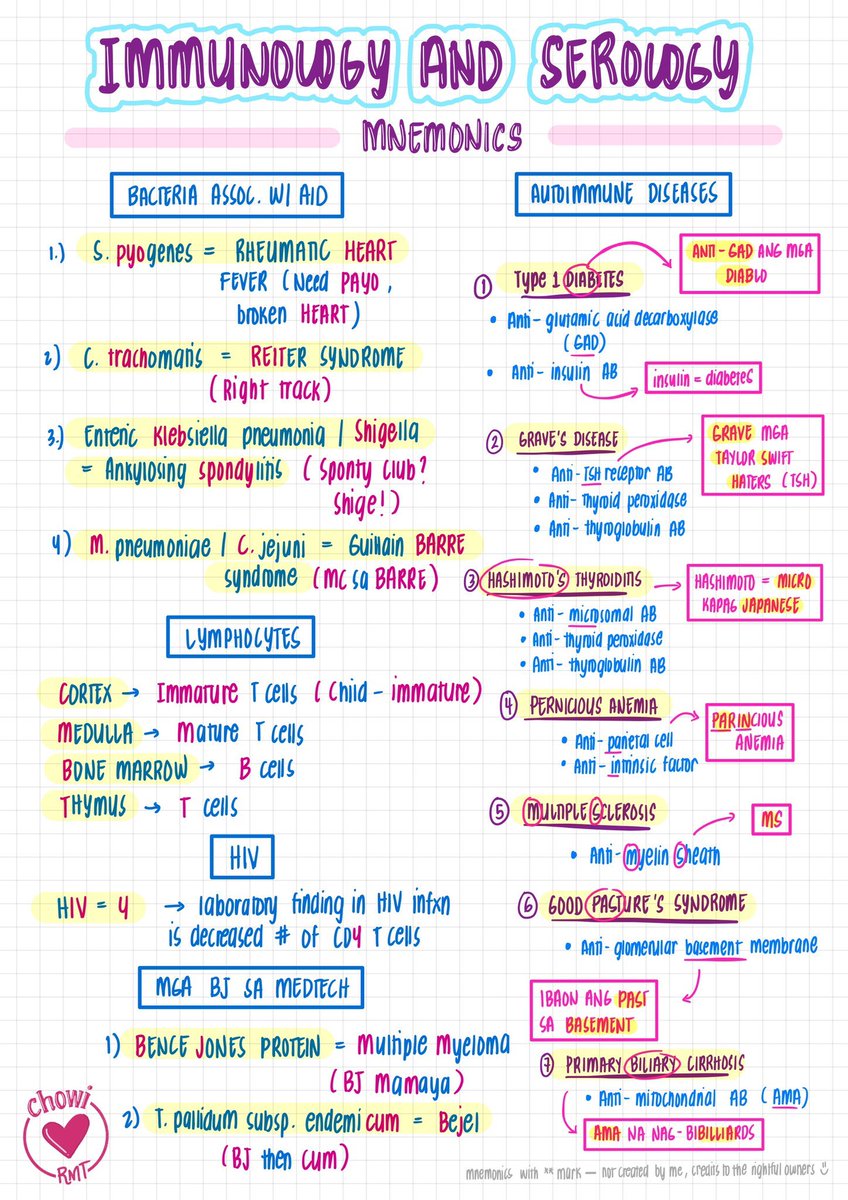 IMMUNOLOGY AND SEROLOGY
MNEMONICS
BACTERIA ASSOC. W/ AID
1.) S. pyogenes = RHEUMATIC HEART
FEVER (Need PAYO,
broken HEART)
2) C. trachomatis = REITER SYNDROME
(Right track)
3.) Enteric Klebsiella pneumonia / Shigella
= Ankylosing spondylitis (Sponty club?
Shige!)
4) M. pneumoniae / C. jejuni = Guillain BARRE
syndrome (MC sa BARRE)
LYMPHOCYTES
CORTEX → Immature T cells (Child - immature)
MEDULLA → Mature T cells
BONE MARROW → B cells
THYMUS → T cells
HIV
HIV = 4 → laboratory finding in HIV infxn
is decreased # of CD4 T cells
MGA BJ SA MEDTECH
1) BENCE JONES PROTEIN = Multiple Myeloma
(BJ mamaya)
2) T. pallidum subsp. endemicum = Bejel
(BJ then cum)
chowi
RMT
AUTOIMMUNE DISEASES
① Type 1 DIABETES
ANTI-GAD ANG MGA
DIABLO
• Anti-glutamic acid decarboxylase
(GAD)
• Anti-insulin AB
insulin = diabetes
② GRAVE'S DISEASE
GRAVE MGA
TAYLOR SWIFT
HATERS (TSH)
• Anti-TSH receptor AB
• Anti-Thyroid peroxidase
• Anti-thyroglobulin AB
③ HASHIMOTO'S THYROIDITIS
HASHIMOTO = MICRO
KAPAG JAPANESE
• Anti-microsomal AB
• Anti-thyroid peroxidase
• Anti-thyroglobulin AB
④ PERNICIOUS ANEMIA
PARINCIOUS
ANEMIA
• Anti-parietal cell
• Anti-intrinsic factor
⑤ MULTIPLE SCLEROSIS
MS
• Anti-myelin sheath
⑥ GOOD PASTURE'S SYNDROME
• Anti-glomerular basement membrane
IBAON ANG PAST
SA BASEMENT
⑦ PRIMARY BILIARY CIRRHOSIS
• Anti-mitochondrial AB (AMA)
AMA NA NAG-BIBILLIARDS
mnemonics with ** mark — not created by me, credits to the rightful owners